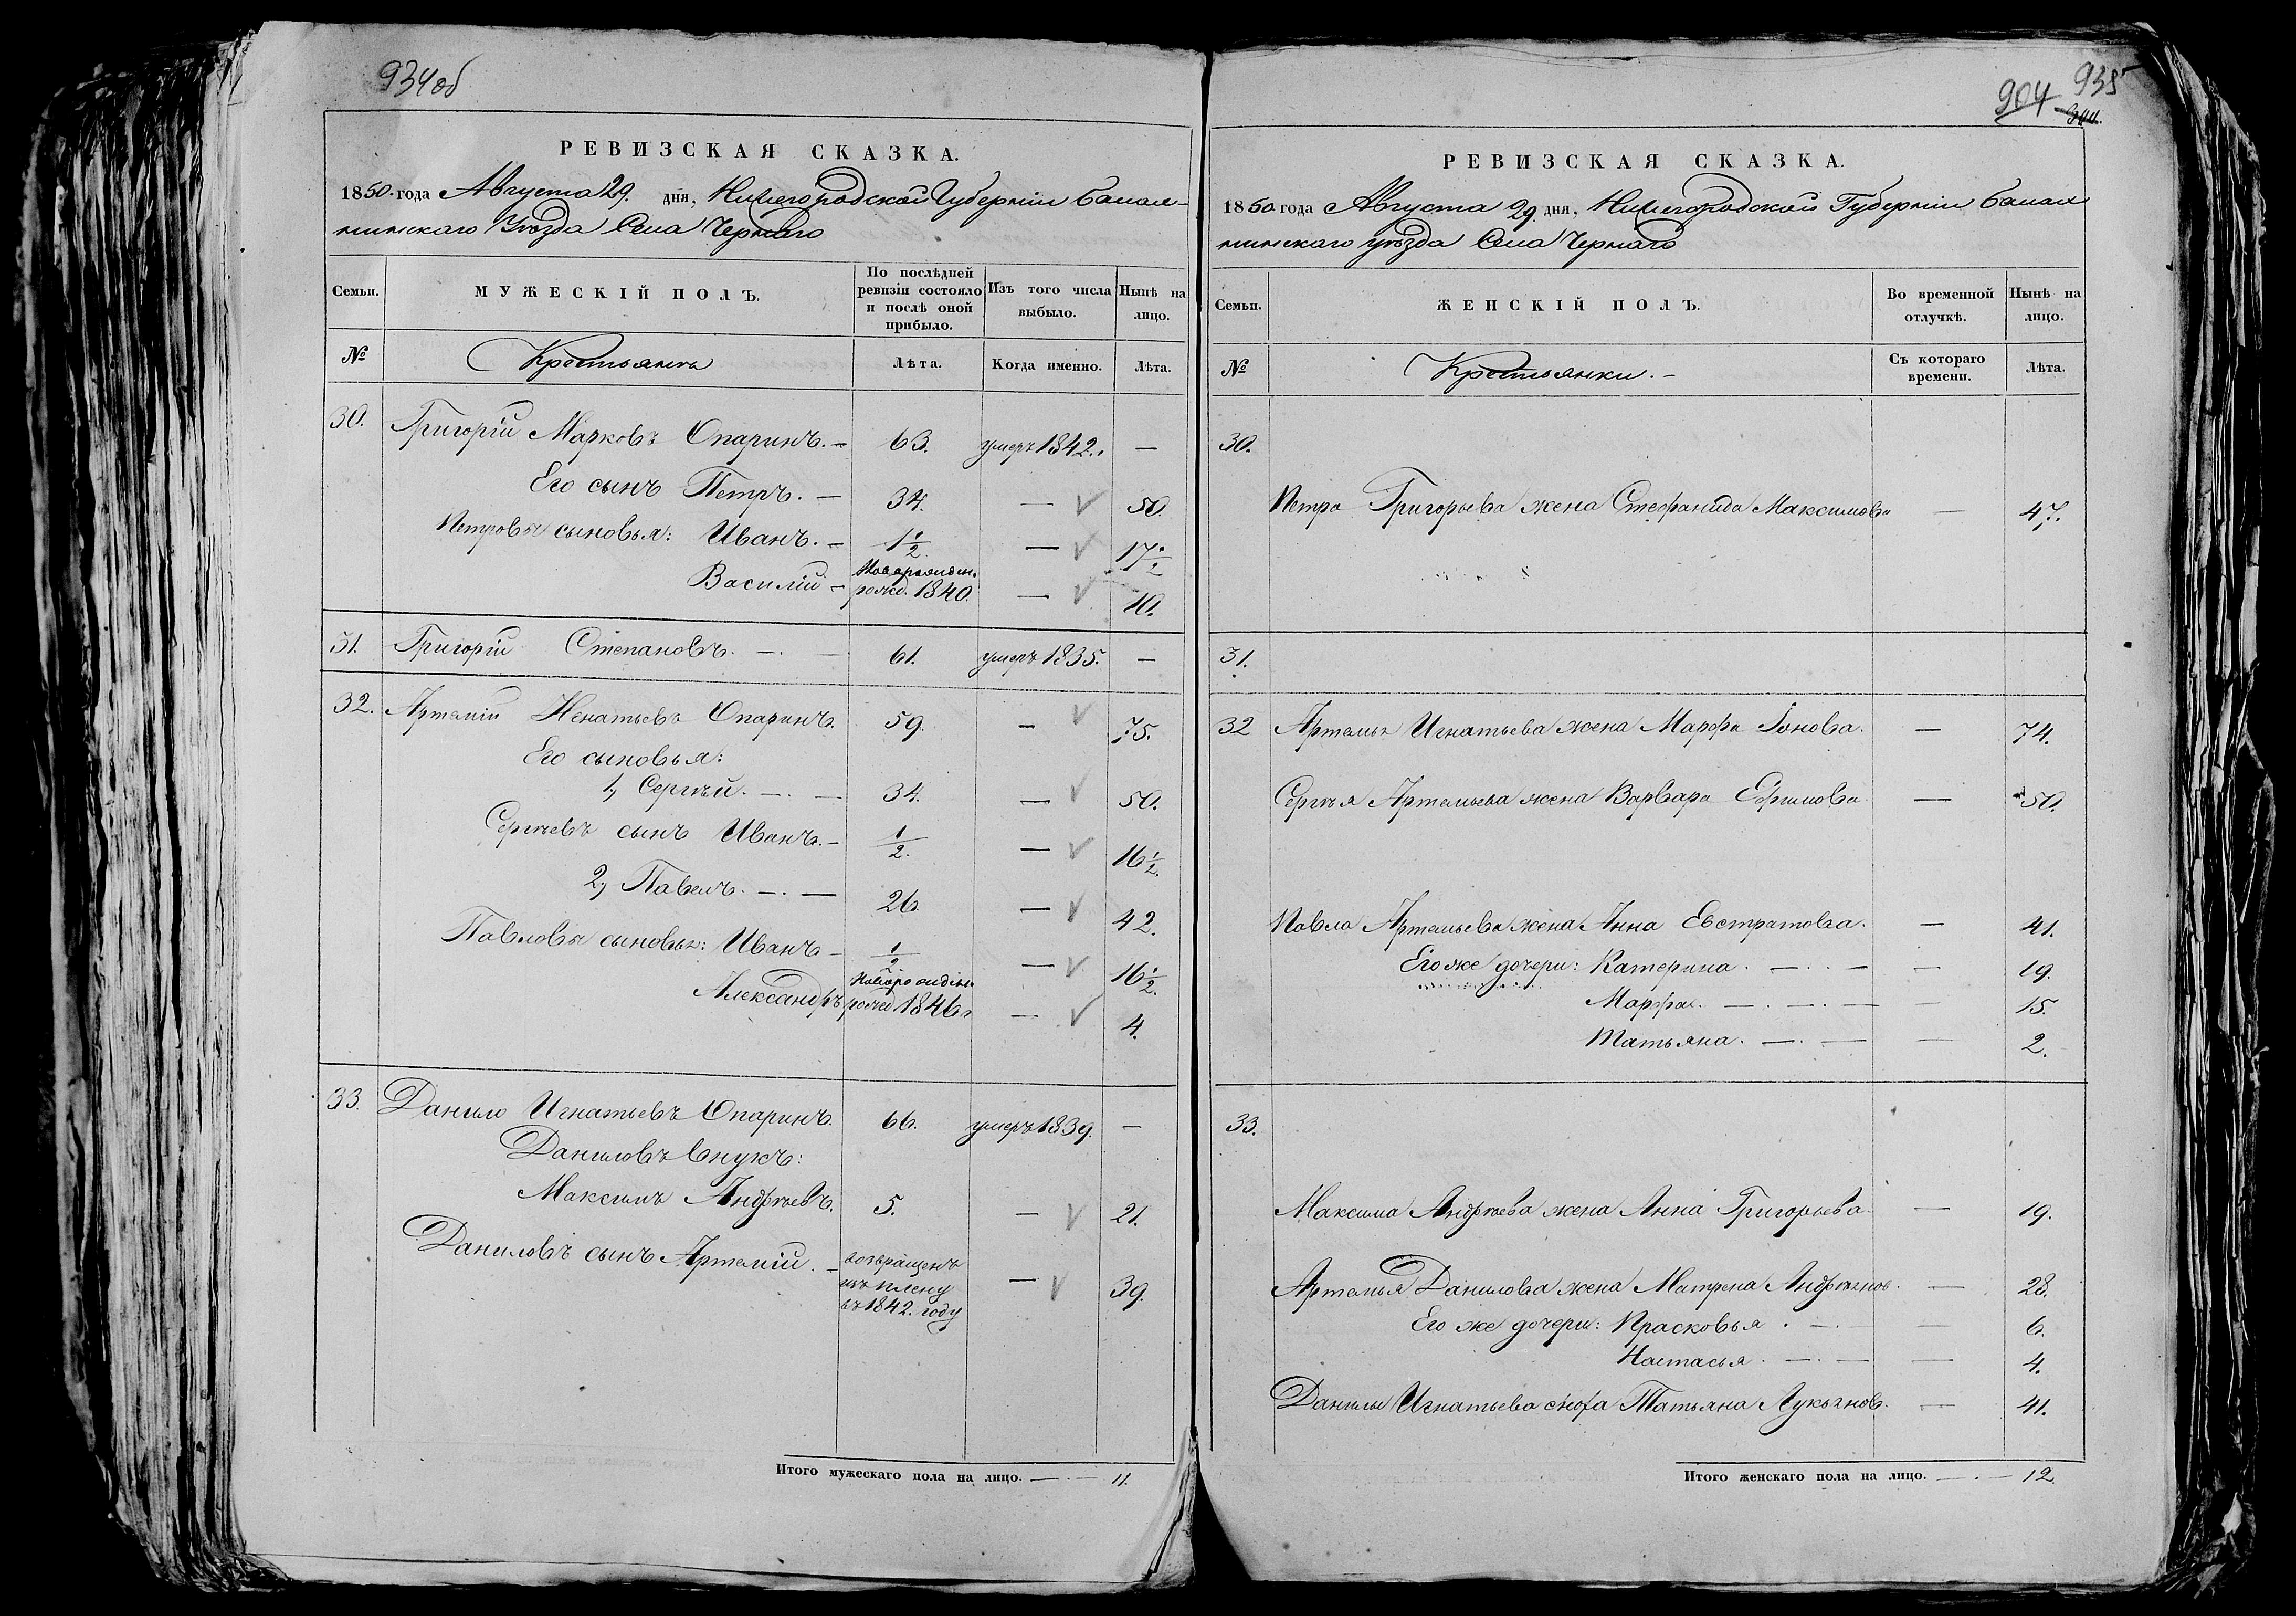 934об
РЕВИЗСКАЯ СКАЗКА.
1850 года Августа 29. дня, Нижегородской Губерніи Балах-
нинскаго Уѣзда Села Чернаго
Семьи.
МУЖЕСКІЙ ПОЛЪ.
По послѣдней ревизіи состояло и послѣ оной прибыло.
Изъ того числа выбыло.
Нынѣ на лицо.
№
Крестьянъ
Лѣта.
Когда именно.
Лѣта.
30. Григорій Марковъ Опаринъ. — 63. умеръ 1842. —
Его сынъ Петръ. — 34. — 50.
Петровы сыновья: Иванъ. — 1 1/2. — 17 1/2
Василій — новорожден. рожд. 1840. — 10.
31. Григорій Степановъ. — . — 61. умеръ 1835. —
32. Артемій Игнатьевъ Опаринъ. 59. — 75.
Его сыновья:
1, Сергѣй. — . — 34. — 50.
Сергѣевъ сынъ Иванъ. — 1/2. — 16 1/2.
2, Павелъ. — . — 26. — 42.
Павловы сыновья: Иванъ — 1/2 — 16 1/2.
Александръ рожд 1846 — 4.
33. Данило Игнатьевъ Опаринъ. 66. умеръ 1839. —
Даниловъ внукъ:
Максимъ Андреевъ. 5. — 21.
Даниловъ сынъ Артемій. — возвращенъ изъ плену въ 1842. году — 39.
Итого мужескаго пола на лицо. — . — 11.
904 935
РЕВИЗСКАЯ СКАЗКА.
1850 года Августа 29 дня, Нижегородской Губерніи Балах
нинскаго уѣзда Села Чернаго
Семьи.
ЖЕНСКІЙ ПОЛЪ.
Во временной отлучкѣ.
Нынѣ на лицо.
№
Крестьянки. —
Съ котораго времени.
Лѣта.
30.
Петра Григорьева жена Стефанида Максимова — 47.
31.
32 Артемья Игнатьева жена Марфа Іонова. — 74.
Сергѣя Артемьева жена Варвара Ефимова — 50.
Павла Артемьева жена Анна Евстратова. — 41.
Его же дочери: Катерина. — . — — 19.
Марфа. — . — . — — 15.
Татьяна. — . — — 2.
33.
Максима Андреева жена Анна Григорьева — 19.
Артемья Данилова жена Матрена Андреянов. — 28.
Его же дочери: Прасковья . — . — 6.
Настасья . — . — — 4.
Данилы Игнатьева сноха Татьяна Лукьянов. — 41.
Итого женскаго пола на лицо. — . — 12.